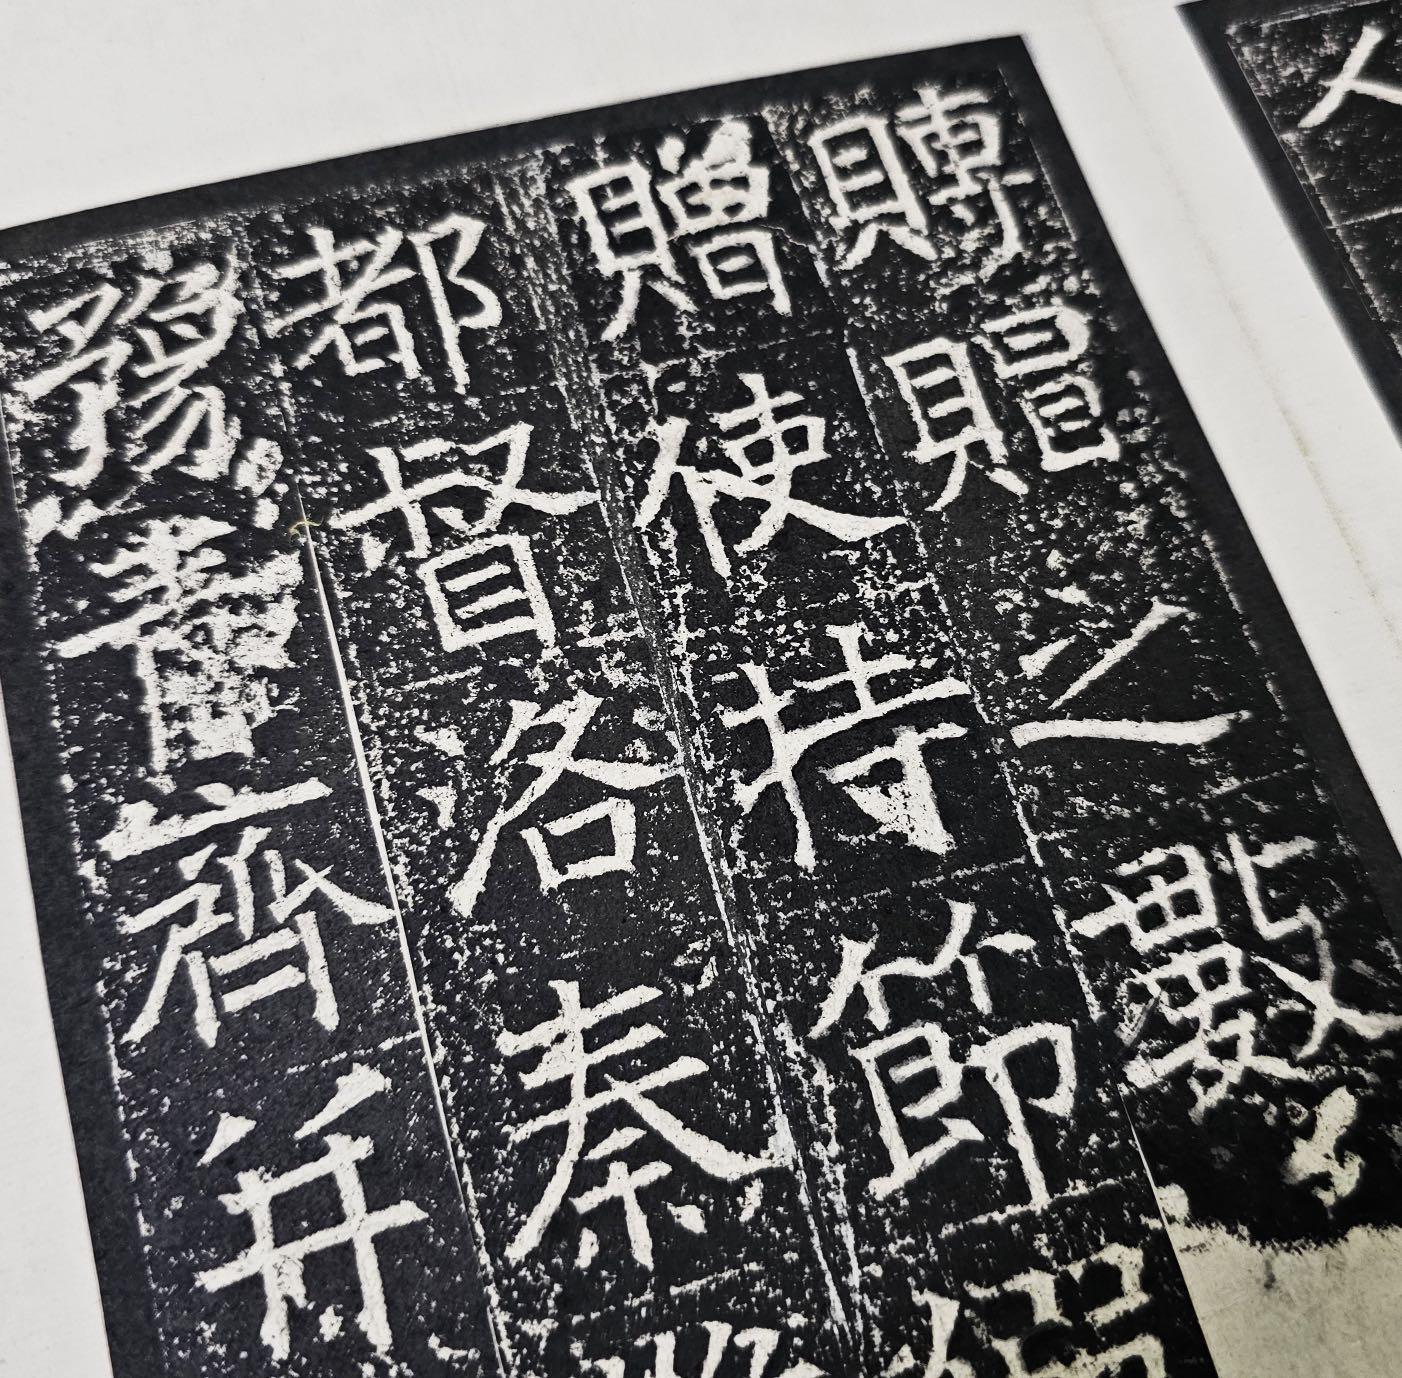 賻賵之數
贈使持節
都督洛秦
豫
齊并